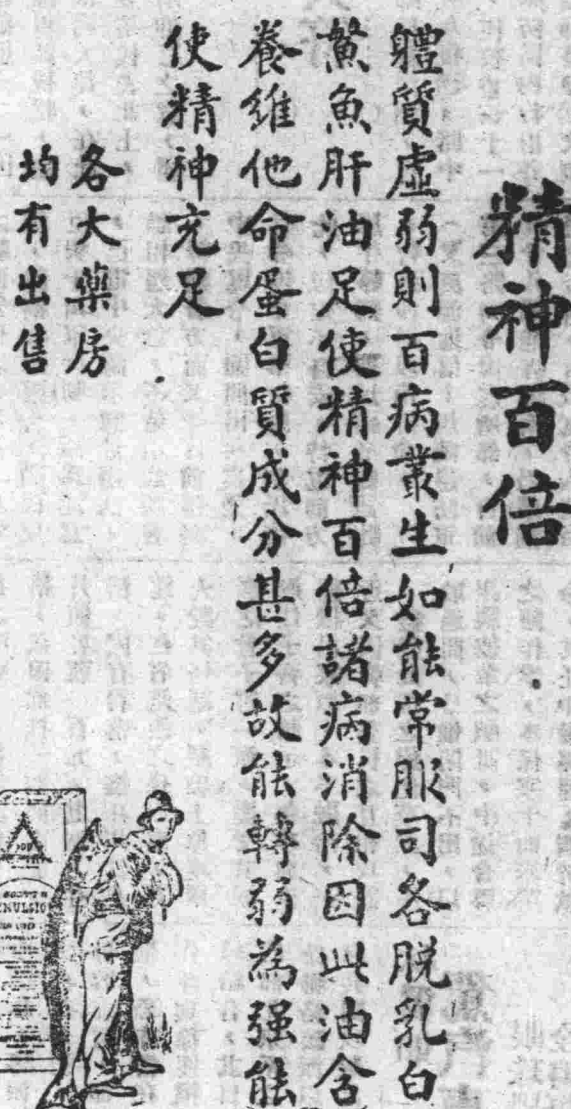 精神百倍
軆質虛弱則百病叢生如能常服司各脱乳白
鰵魚肝油足使精神百倍諸病消除因此油含
養維他命蛋白質成分甚多故能轉弱為强能
使精神充足
各大藥房
均有出售